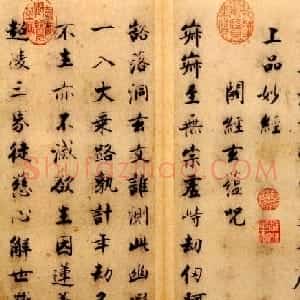 上品妙經
開經玄蘊咒
寂寂至無宗虛峙劫仞
豁落洞玄文誰測此幽遐
一入大乘路孰計年劫
不生亦不滅欲生因蓮
超凌三界徒慈心解世